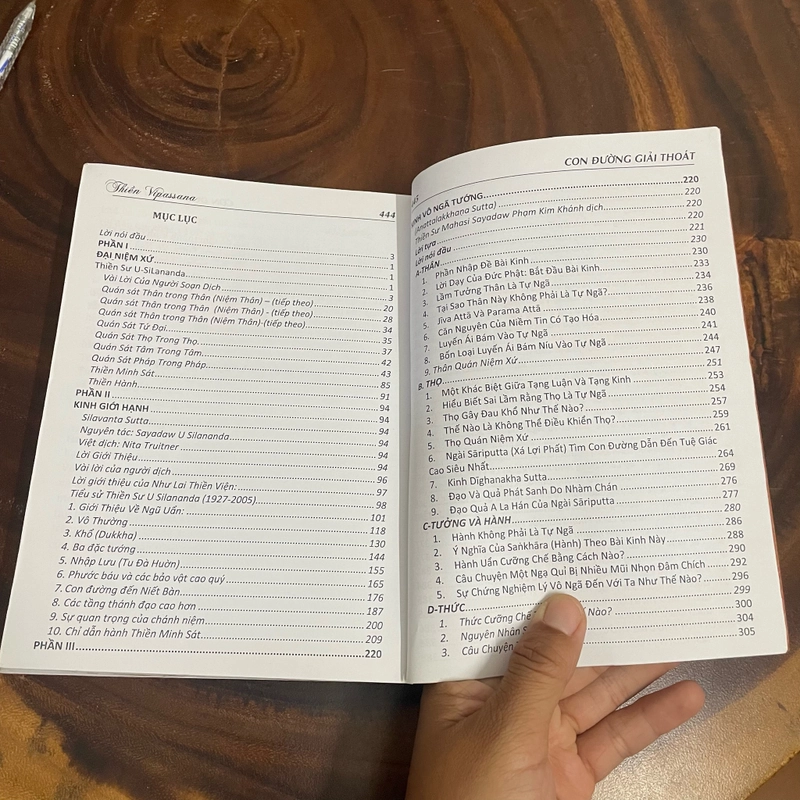 Thiền Vipassana
MỤC LỤC 444
Lời nói đầu 3
PHẦN I 1
ĐẠI NIỆM XỨ 1
Thiền Sư U-SiLananda 1
Vài Lời Của Người Soạn Dịch 3
Quán sát Thân trong Thân (Niệm Thân) – (tiếp theo) 20
Quán sát Thân trong Thân (Niệm Thân) - (tiếp theo) 28
Quán sát Thân trong Thân (Niệm Thân)-(tiếp theo) 34
Quán Sát Tứ Đại 35
Quán Sát Thọ Trong Thọ 37
Quán Sát Tâm Trong Tâm 42
Quán Sát Pháp Trong Pháp 43
Thiền Minh Sát 85
Thiền Hành 91
PHẦN II 94
KINH GIỚI HẠNH 94
Silavanta Sutta 94
Nguyên tác: Sayadaw U Silananda 94
Việt dịch: Nita Truitner 94
Lời Giới Thiệu 94
Vài lời của người dịch 96
Lời giới thiệu của Như Lai Thiền Viện: 97
Tiểu sử Thiền Sư U Silananda (1927-2005) 98
1. Giới Thiệu Về Ngũ Uẩn: 101
2. Vô Thường 118
3. Khổ (Dukkha) 130
4. Ba đặc tướng 144
5. Nhập Lưu (Tu Đà Huờn) 155
6. Phước báu và các bảo vật cao quý 165
7. Con đường đến Niết Bàn 176
8. Các tầng thánh đạo cao hơn 187
9. Sự quan trọng của chánh niệm 200
10. Chỉ dẫn hành Thiền Minh Sát 209
PHẦN III 220
CON ĐƯỜNG GIẢI THOÁT
VÔ NGÃ TƯỚNG 220
(Anattalakkhana Sutta) 220
Thiền Sư Mahasi Sayadaw Phạm Kim Khánh dịch 220
Lời tựa 220
Lời nói đầu 221
A-THÂN 230
1. Phần Nhập Đề Bài Kinh 230
2. Lời Dạy Của Đức Phật: Bắt Đầu Bài Kinh 233
3. Lầm Tưởng Thân Là Tự Ngã 234
4. Tại Sao Thân Này Không Phải Là Tự Ngã? 236
5. Jiva Attā Và Parama Attā 238
6. Căn Nguyên Của Niềm Tin Có Tạo Hóa 240
7. Luyến Ái Bám Vào Tự Ngã 241
8. Bốn Loại Luyến Ái Bám Níu Vào Tự Ngã 244
9. Thân Quán Niệm Xứ 247
B. THỌ 251
1. Một Khác Biệt Giữa Tạng Luận Và Tạng Kinh 253
2. Hiểu Biết Sai Lầm Rằng Thọ Là Tự Ngã 254
3. Thọ Gây Đau Khổ Như Thế Nào? 257
4. Thế Nào Là Không Thể Điều Khiển Thọ? 259
5. Thọ Quán Niệm Xứ 261
6. Ngài Sāriputta (Xá Lợi Phất) Tìm Con Đường Dẫn Đến Tuệ Giác
Cao Siêu Nhất 264
7. Kinh Dighanakha Sutta 269
8. Đạo Và Quả Phát Sanh Do Nhàm Chán 276
9. Đạo Quả A La Hán Của Ngài Sāriputta 277
C-TƯỞNG VÀ HÀNH 280
1. Hành Không Phải Là Tự Ngã 286
2. Ý Nghĩa Của Saṅkhāra (Hành) Theo Bài Kinh Này 288
3. Hành Uẩn Cưỡng Chế Bằng Cách Nào? 290
4. Câu Chuyện Một Ngạ Quỉ Bị Nhiều Mũi Nhọn Đâm Chích 292
5. Sự Chứng Nghiệm Lý Vô Ngã Đến Với Ta Như Thế Nào? 296
D-THỨC 299
1. Thức Cưỡng Chế Nào? 300
2. Nguyên Nhân 304
3. Câu Chuyện 305